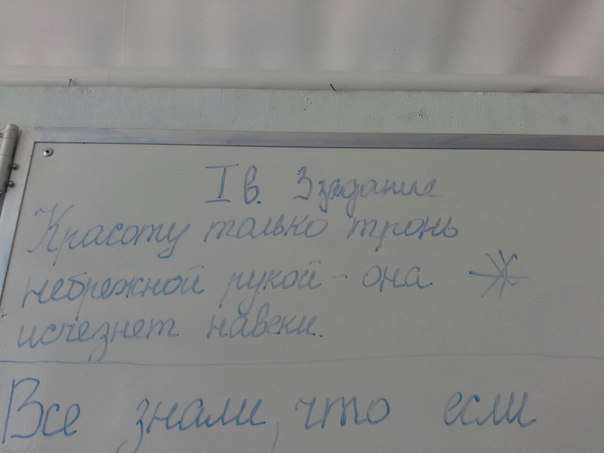 I в. 3 задание
Красоту только тронь
небрежной рукой - она
исчезнет навеки.
Все знали, что если